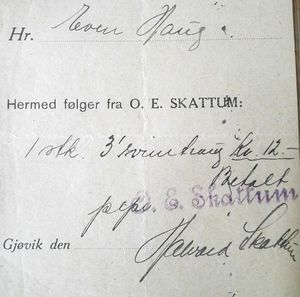 Hr. Even Haug.
Hermed følger fra O. E. SKATTUM:
1 stk. Kr. 12-
Betalt
O. E. Skattum
Gjøvik den Halvard Skattum